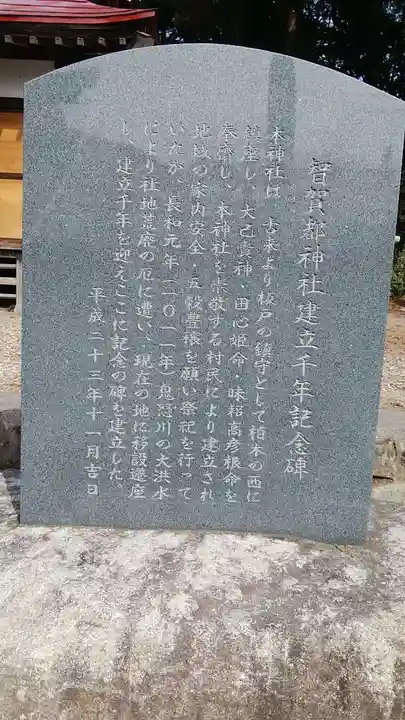 智賀都神社建立千年記念碑
本神社は、古来より板戸の鎮守として柏木の西に
鎮座し、大己貴神、田心姫命・味耜高彦根命を
奉斎し、本神社を崇敬する村民により建立され
地域の家内安全・五穀豊穣を願い祭祀を行って
いたが、長和元年(一〇一一年)鬼怒川の大洪水
により社地荒廃の厄に遭い、現在の地に移設遷座
し、建立千年を迎えここに記念の碑を建立した。
平成二十三年十一月吉日